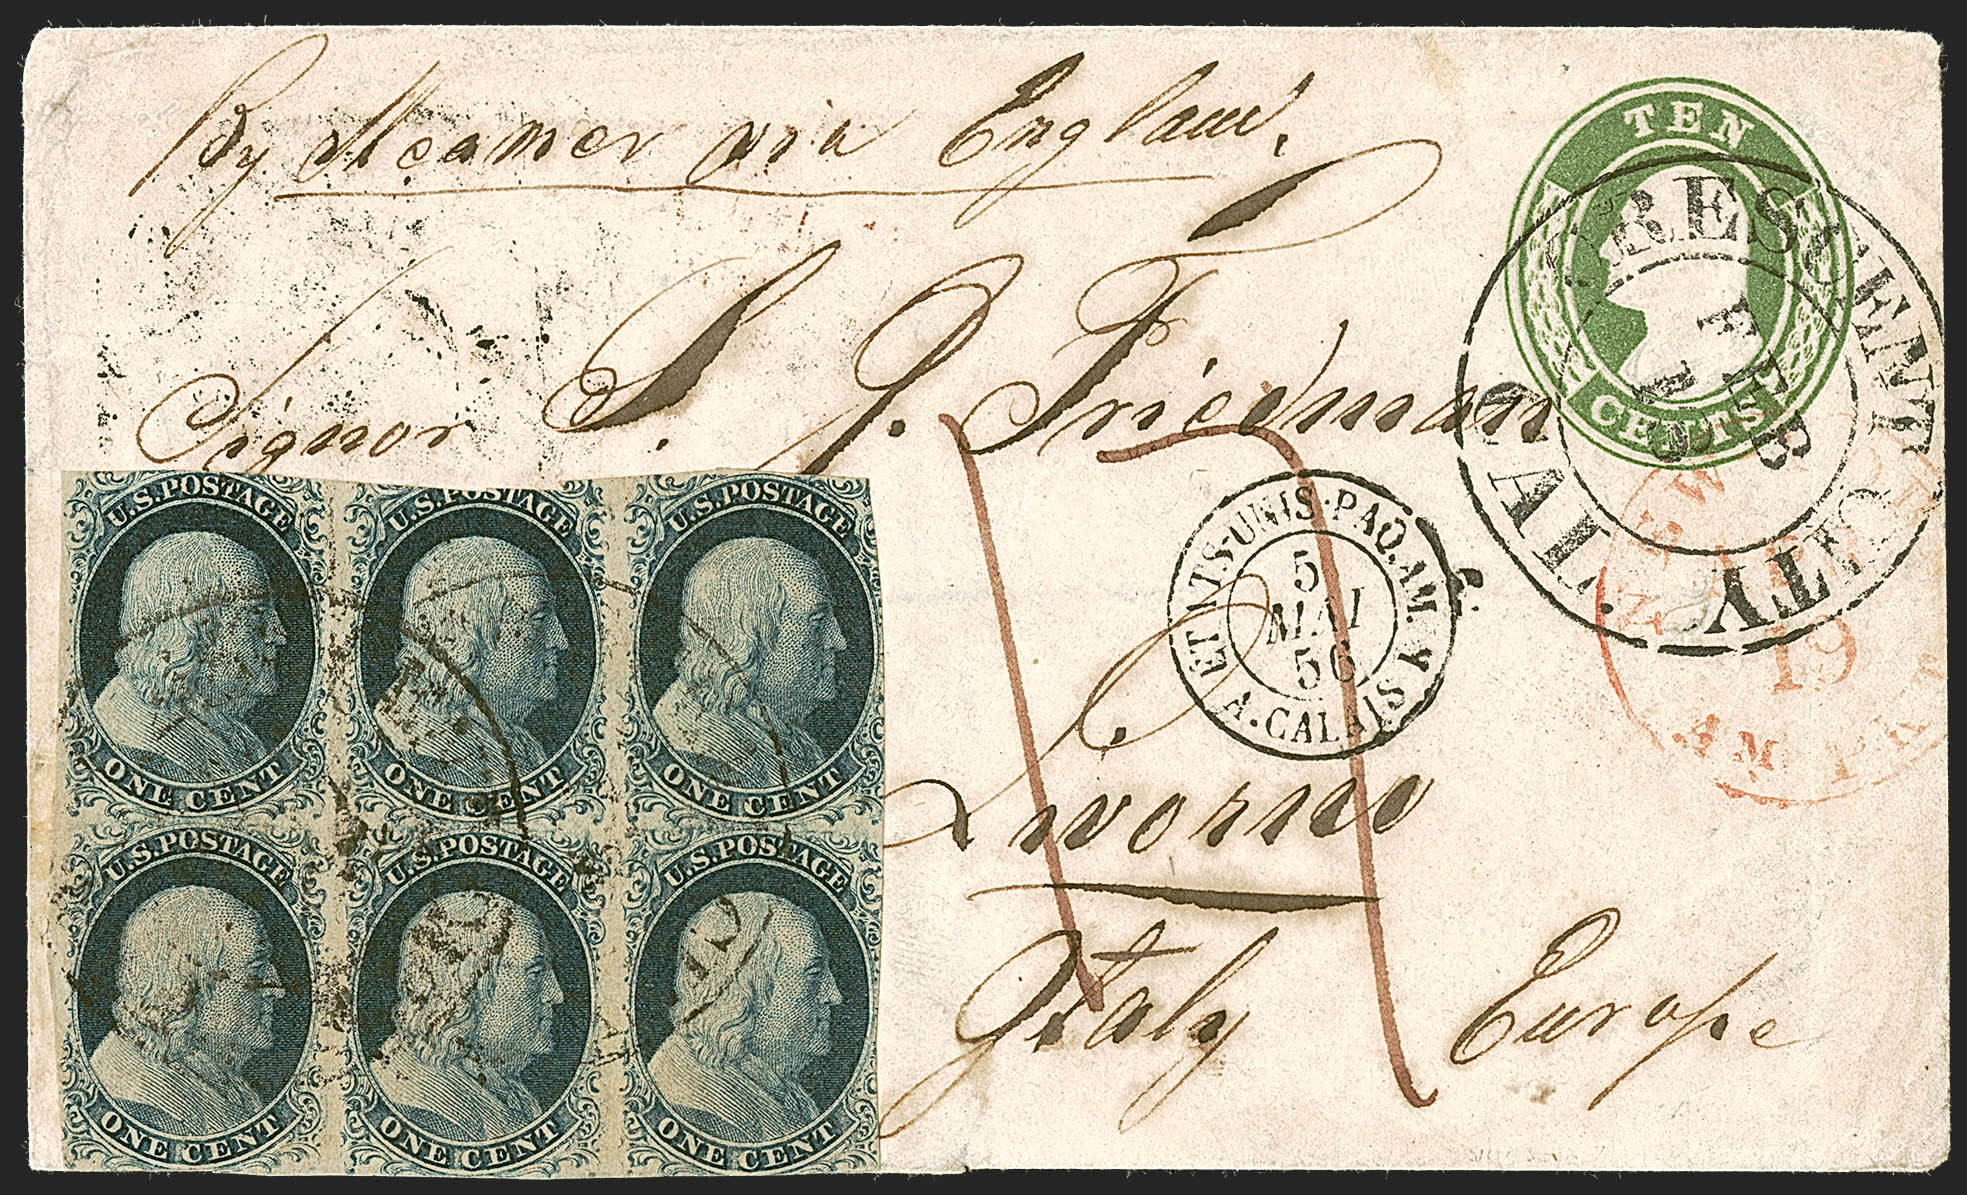 By Steamer via England.
TEN
CENTS
CRESCENT CITY CAL.
FEB
Signor S. J. Friedman
ETATS-UNIS-PAQ. AM. V.
5
MAI
56
A. CALAIS
NEW YORK
19
AM. PKT
Livorno
Italy Europe
U.S. POSTAGE U.S. POSTAGE U.S. POSTAGE
ONE CENT ONE CENT ONE CENT
U.S. POSTAGE U.S. POSTAGE U.S. POSTAGE
ONE CENT ONE CENT ONE CENT